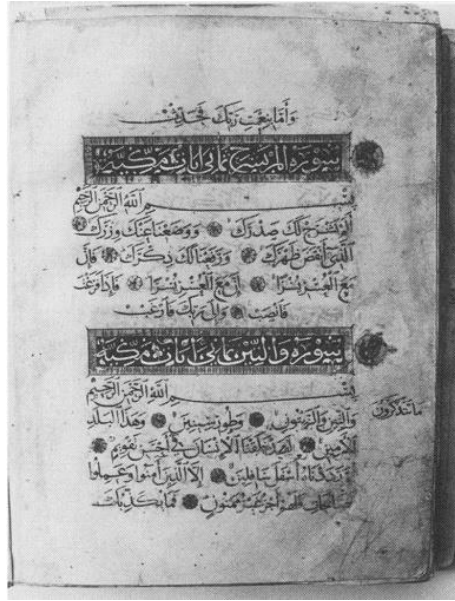 وَأَمَّا بِنِعْمَةِ رَبِّكَ فَحَدِّثْ
سورة الم نشرح ثماني آيات مكية
بِسْمِ اللَّهِ الرَّحْمَنِ الرَّحِيمِ
أَلَمْ نَشْرَحْ لَكَ صَدْرَكَ وَوَضَعْنَا عَنْكَ وِزْرَكَ
الَّذِي أَنْقَضَ ظَهْرَكَ وَرَفَعْنَا لَكَ ذِكْرَكَ فَإِنَّ
مَعَ الْعُسْرِ يُسْرًا إِنَّ مَعَ الْعُسْرِ يُسْرًا فَإِذَا فَرَغْتَ
فَانْصَبْ وَإِلَى رَبِّكَ فَارْغَبْ
سورة والتين ثماني آيات مكية
بِسْمِ اللَّهِ الرَّحْمَنِ الرَّحِيمِ
وَالتِّينِ وَالزَّيْتُونِ وَطُورِ سِينِينَ وَهَذَا الْبَلَدِ
الْأَمِينِ لَقَدْ خَلَقْنَا الْإِنْسَانَ فِي أَحْسَنِ تَقْوِيمٍ
ثُمَّ رَدَدْنَاهُ أَسْفَلَ سَافِلِينَ إِلَّا الَّذِينَ آمَنُوا وَعَمِلُوا
الصَّالِحَاتِ فَلَهُمْ أَجْرٌ غَيْرُ مَمْنُونٍ فَمَا يُكَذِّبُكَ